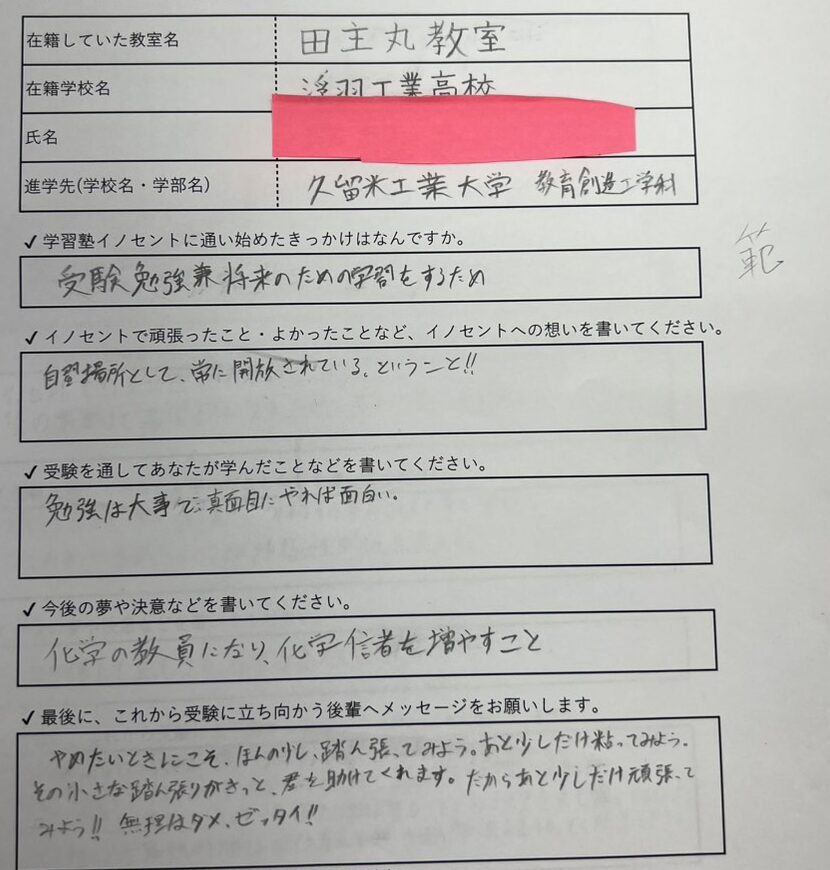 在籍していた教室名 田主丸教室
在籍学校名 浮羽工業高校
氏名
進学先(学校名・学部名) 久留米工業大学 教育創造工学科
✓ 学習塾イノセントに通い始めたきっかけはなんですか。
受験勉強兼将来のための学習をするため
範
✓ イノセントで頑張ったこと・よかったことなど、イノセントへの想いを書いてください。
自習場所として、常に開放されている。ということ!!
✓ 受験を通してあなたが学んだことなどを書いてください。
勉強は大事で、真面目にやれば面白い。
✓ 今後の夢や決意などを書いてください。
化学の教員になり、化学信者を増やすこと
✓ 最後に、これから受験に立ち向かう後輩へメッセージをお願いします。
やめたいときにこそ、ほんの少し、踏ん張ってみよう。あと少しだけ粘ってみよう。
その小さな踏ん張りがきっと、君を助けてくれます。だからあと少しだけ頑張って
みよう!! 無理はダメ、ゼッタイ!!